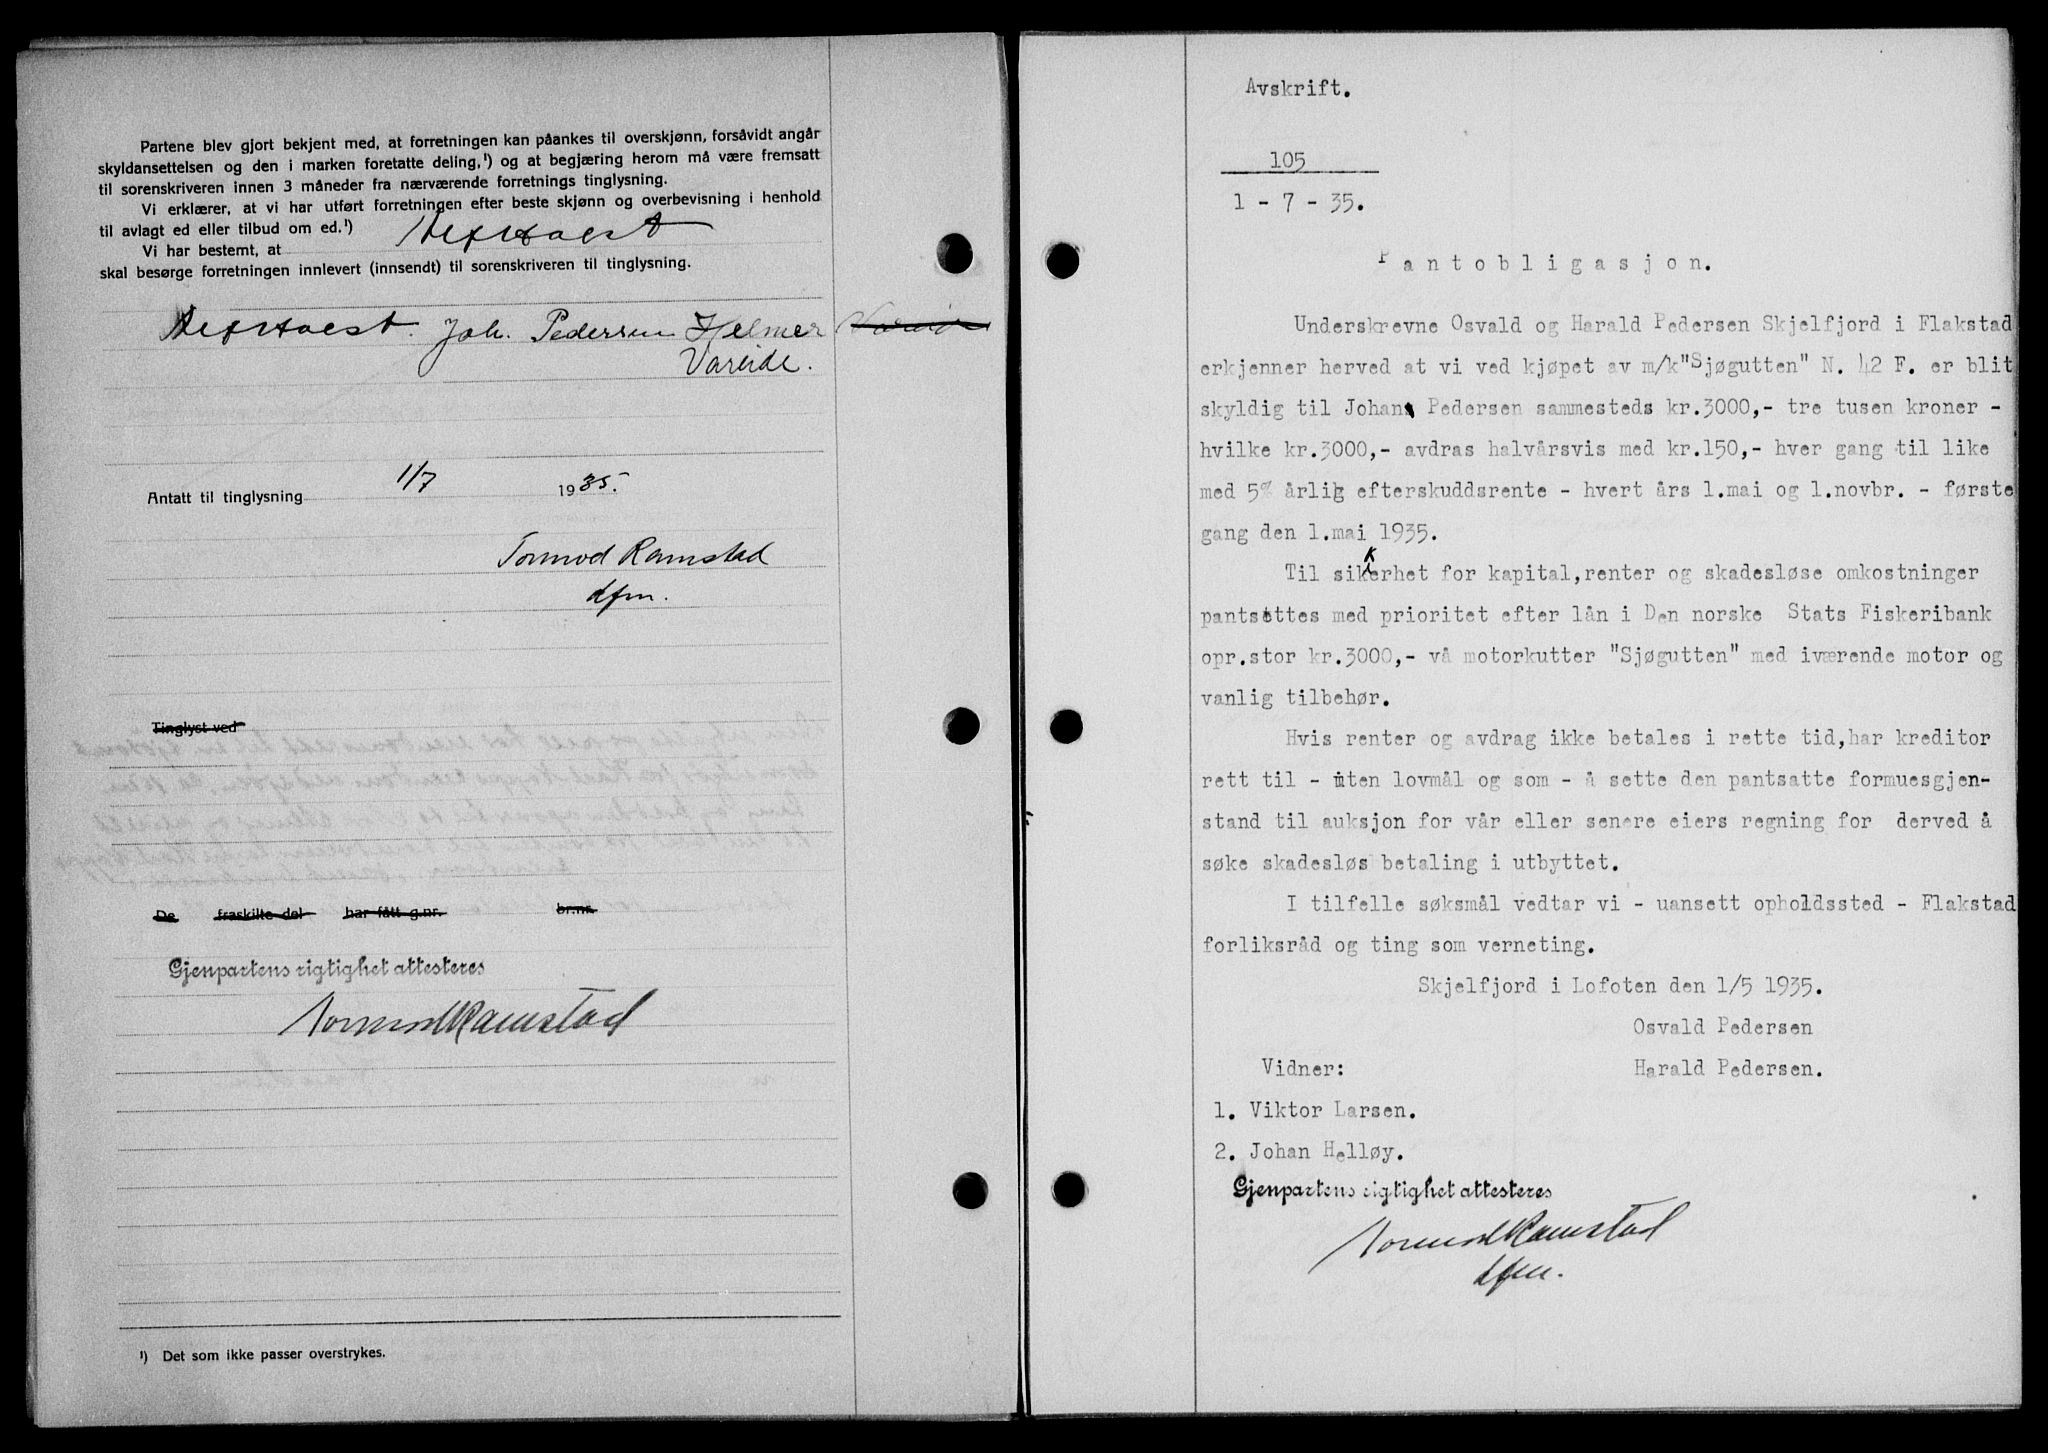 Partene blev gjort bekjent med, at forretningen kan påankes til overskjønn, forsåvidt angår
skyldansettelsen og den i marken foretatte deling,¹) og at begjæring herom må være fremsatt
til sorenskriveren innen 3 måneder fra nærværende forretnings tinglysning.
Vi erklærer, at vi har utført forretningen efter beste skjønn og overbevisning i henhold
til avlagt ed eller tilbud om ed.¹)
Vi har bestemt, at
skal besørge forretningen innlevert (innsendt) til sorenskriveren til tinglysning.
Joh. Pedersen Helmer
Vareide.
Antatt til tinglysning 1/7 1935.
Tormod Ramstad
dfm.
Tinglyst ved
De fraskilte del har fått g.nr. br.nr.
Gjenpartens rigtighet attesteres
Tormod Ramstad
¹) Det som ikke passer overstrykes.
Avskrift.
105
1 - 7 - 35.
Pantobligasjon.
Underskrevne Osvald og Harald Pedersen Skjelfjord i Flakstad
erkjenner herved at vi ved kjøpet av m/k "Sjøgutten" N. 42 F. er blit
skyldig til Johan Pedersen sammesteds kr.3000,- tre tusen kroner -
hvilke kr.3000,- avdras halvårsvis med kr.150,- hver gang til like
med 5% årlig efterskuddsrente - hvert års 1.mai og 1.novbr. - første
gang den 1.mai 1935.
Til sikkerhet for kapital, renter og skadesløse omkostninger
pantsettes med prioritet efter lån i Den norske Stats Fiskeribank
opr.stor kr.3000,- vå motorkutter "Sjøgutten" med iværende motor og
vanlig tilbehør.
Hvis renter og avdrag ikke betales i rette tid, har kreditor
rett til - uten lovmål og som - å sette den pantsatte formuesgjen-
stand til auksjon for vår eller senere eiers regning for derved å
søke skadesløs betaling i utbyttet.
I tilfelle søksmål vedtar vi - uansett opholdssted - Flakstad
forliksråd og ting som verneting.
Skjelfjord i Lofoten den 1/5 1935.
Osvald Pedersen
Vidner: Harald Pedersen.
1. Viktor Larsen.
2. Johan Helløy.
Gjenpartens rigtighet attesteres
Tormod Ramstad
dfm.